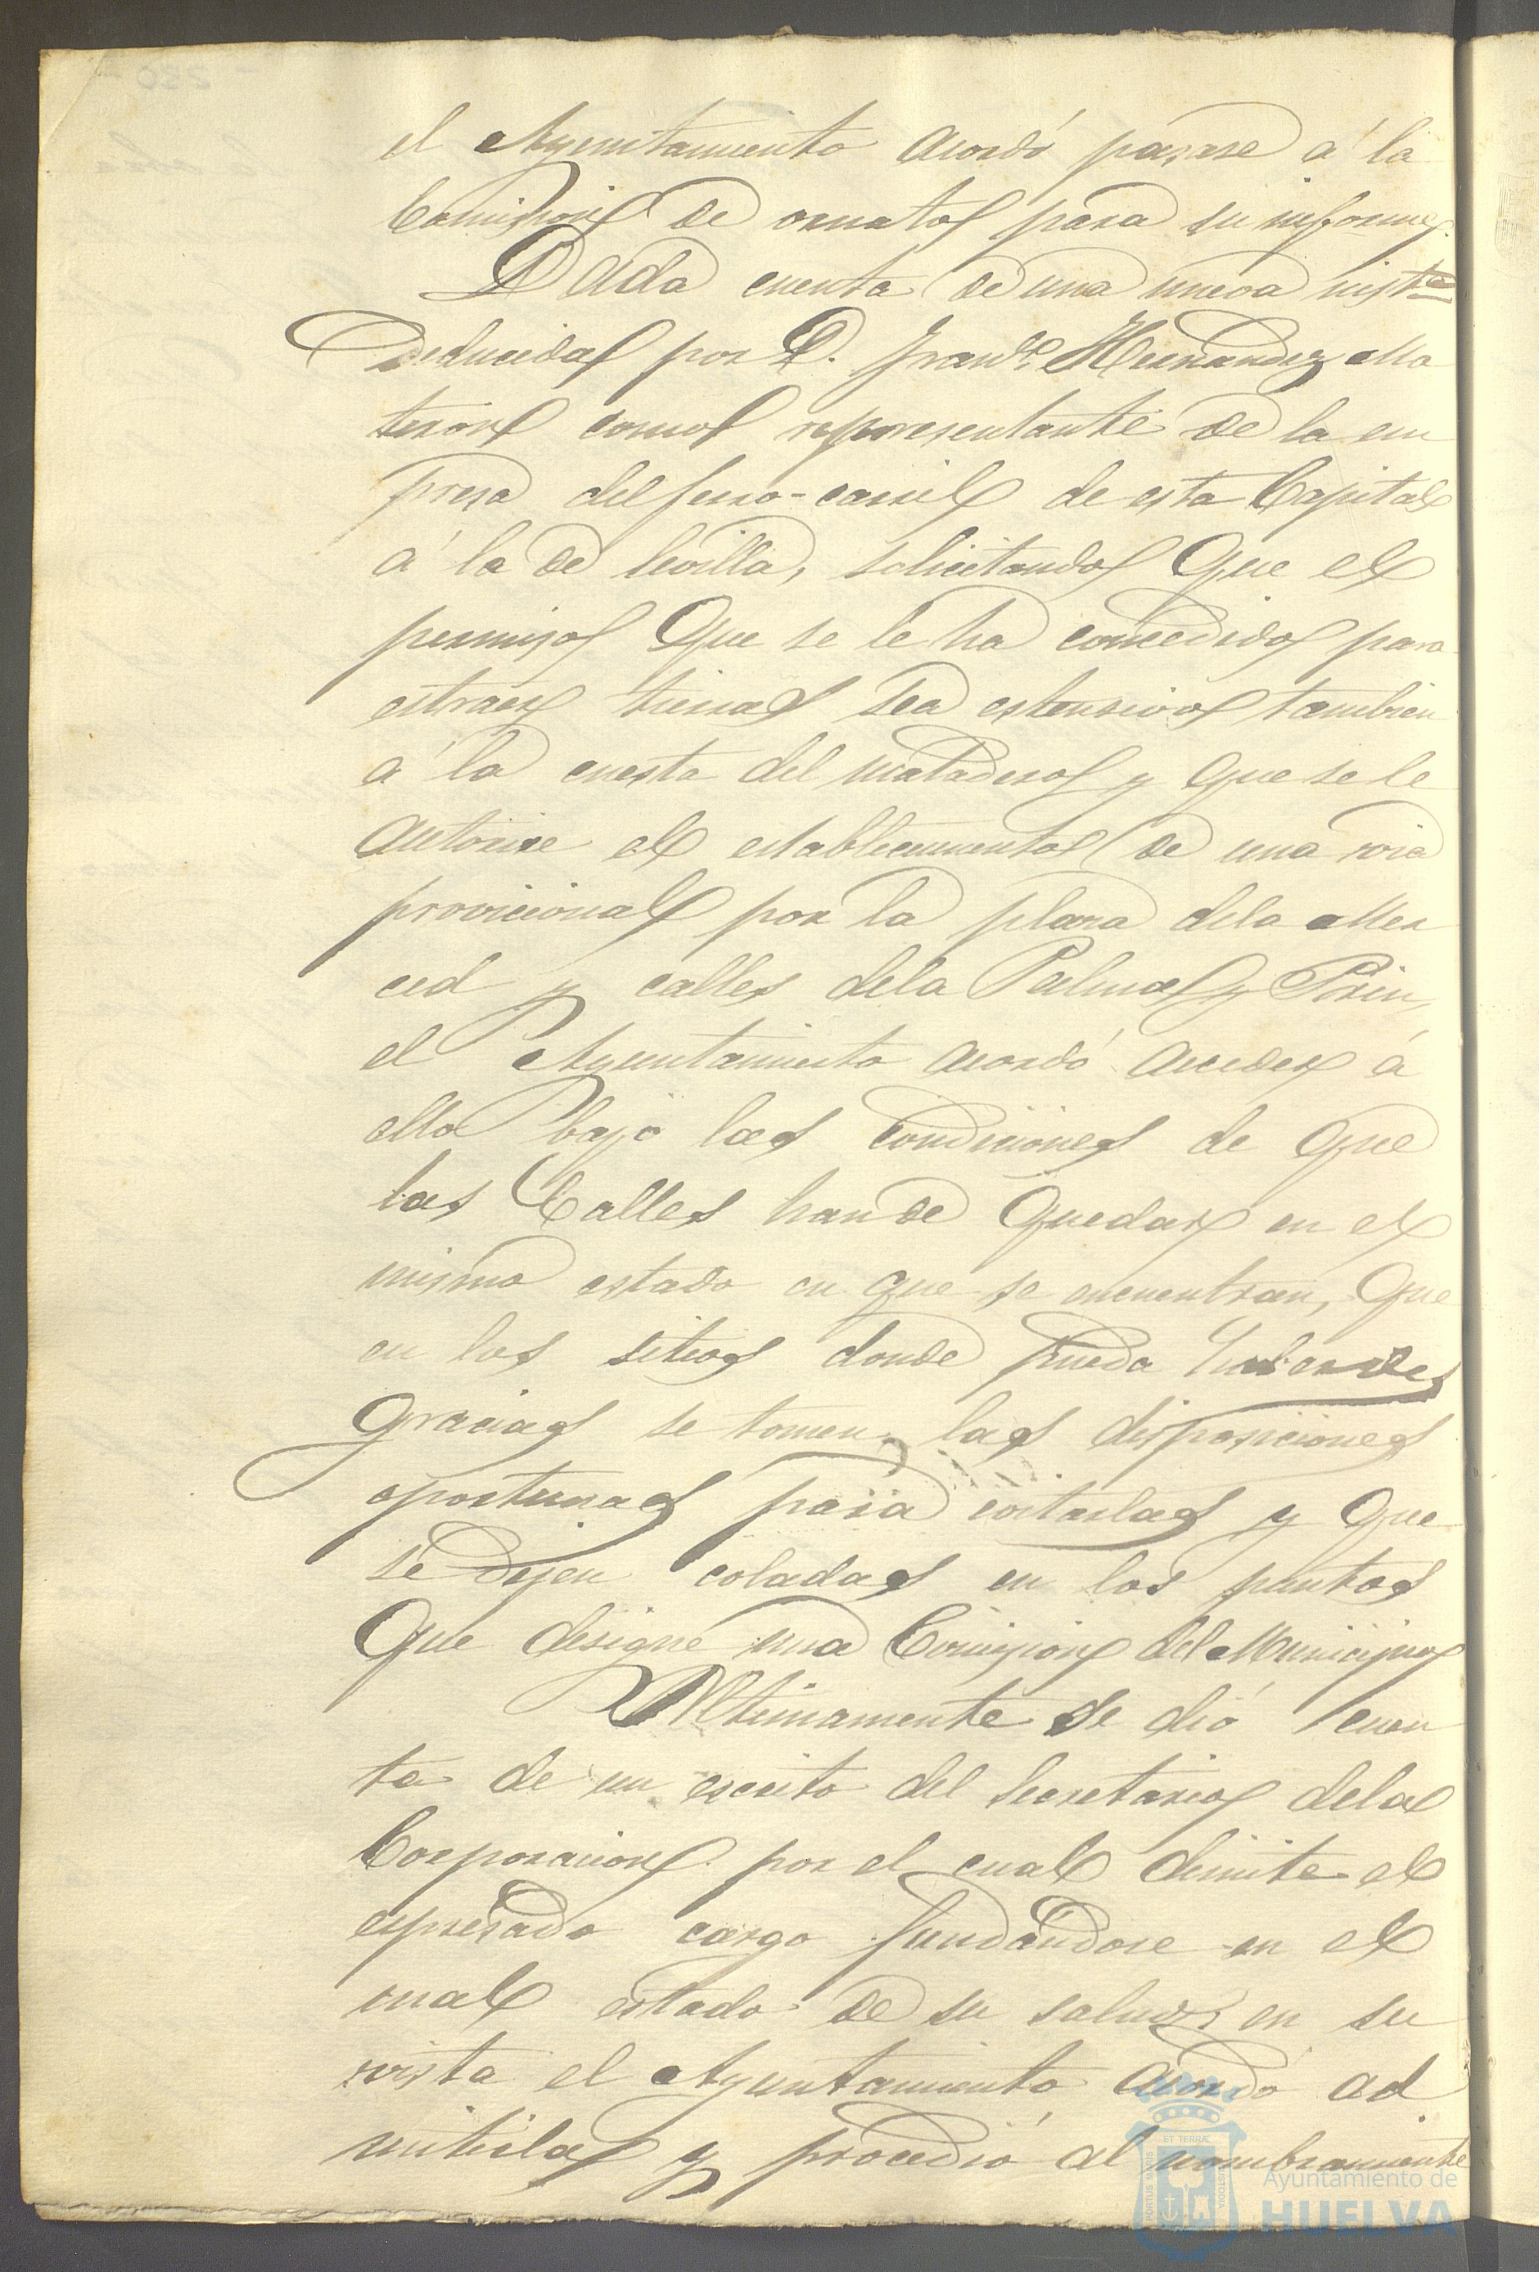 el Ayuntamiento acordó pasase á la
Comision de ornato para su informe.
Dada cuenta de una nueva inst.ª
deducida por D. Fran.co Hernandez Ma
teron como representante de la em
presa del ferro-carril de esta Capital
á la de Sevilla, solicitando que el
permiso que se le ha concedido para
estraer tierras sea estensivo tambien
á la cuesta del matadero y que se le
autorise el establecimiento de una via
provicional por la plaza dela Mer
ced y calles dela Palma y Prin,
el Ayuntamiento acordó acceder á
ello bajo las condiciones de que
las Calles han de quedar en el
mismo estado en que se encuentran, que
en los sitios donde pueda haber des
gracias se tomen las disposiciones
oportunas para evitarlas y que
se dejen coladas en los puntos
que designe una Comision del Municipio
Ultimamente se dió cuen
ta de un escrito del Secretario dela
Corporacion por el cual dimite el
espresado cargo fundándose en el
mal estado de su salud; en su
vista el Ayuntamiento acordó ad
mitirla y procedió al nombramiento
ET TERRÆ
PORTUS MARIS
CUSTODIA
Ayuntamiento de
HUELVA